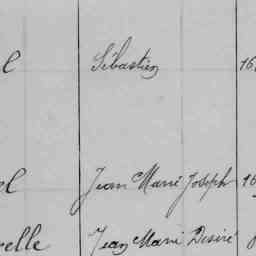 l Sébastien 16
el Jean Marie Joseph 16
relle Jean Marie Désiré